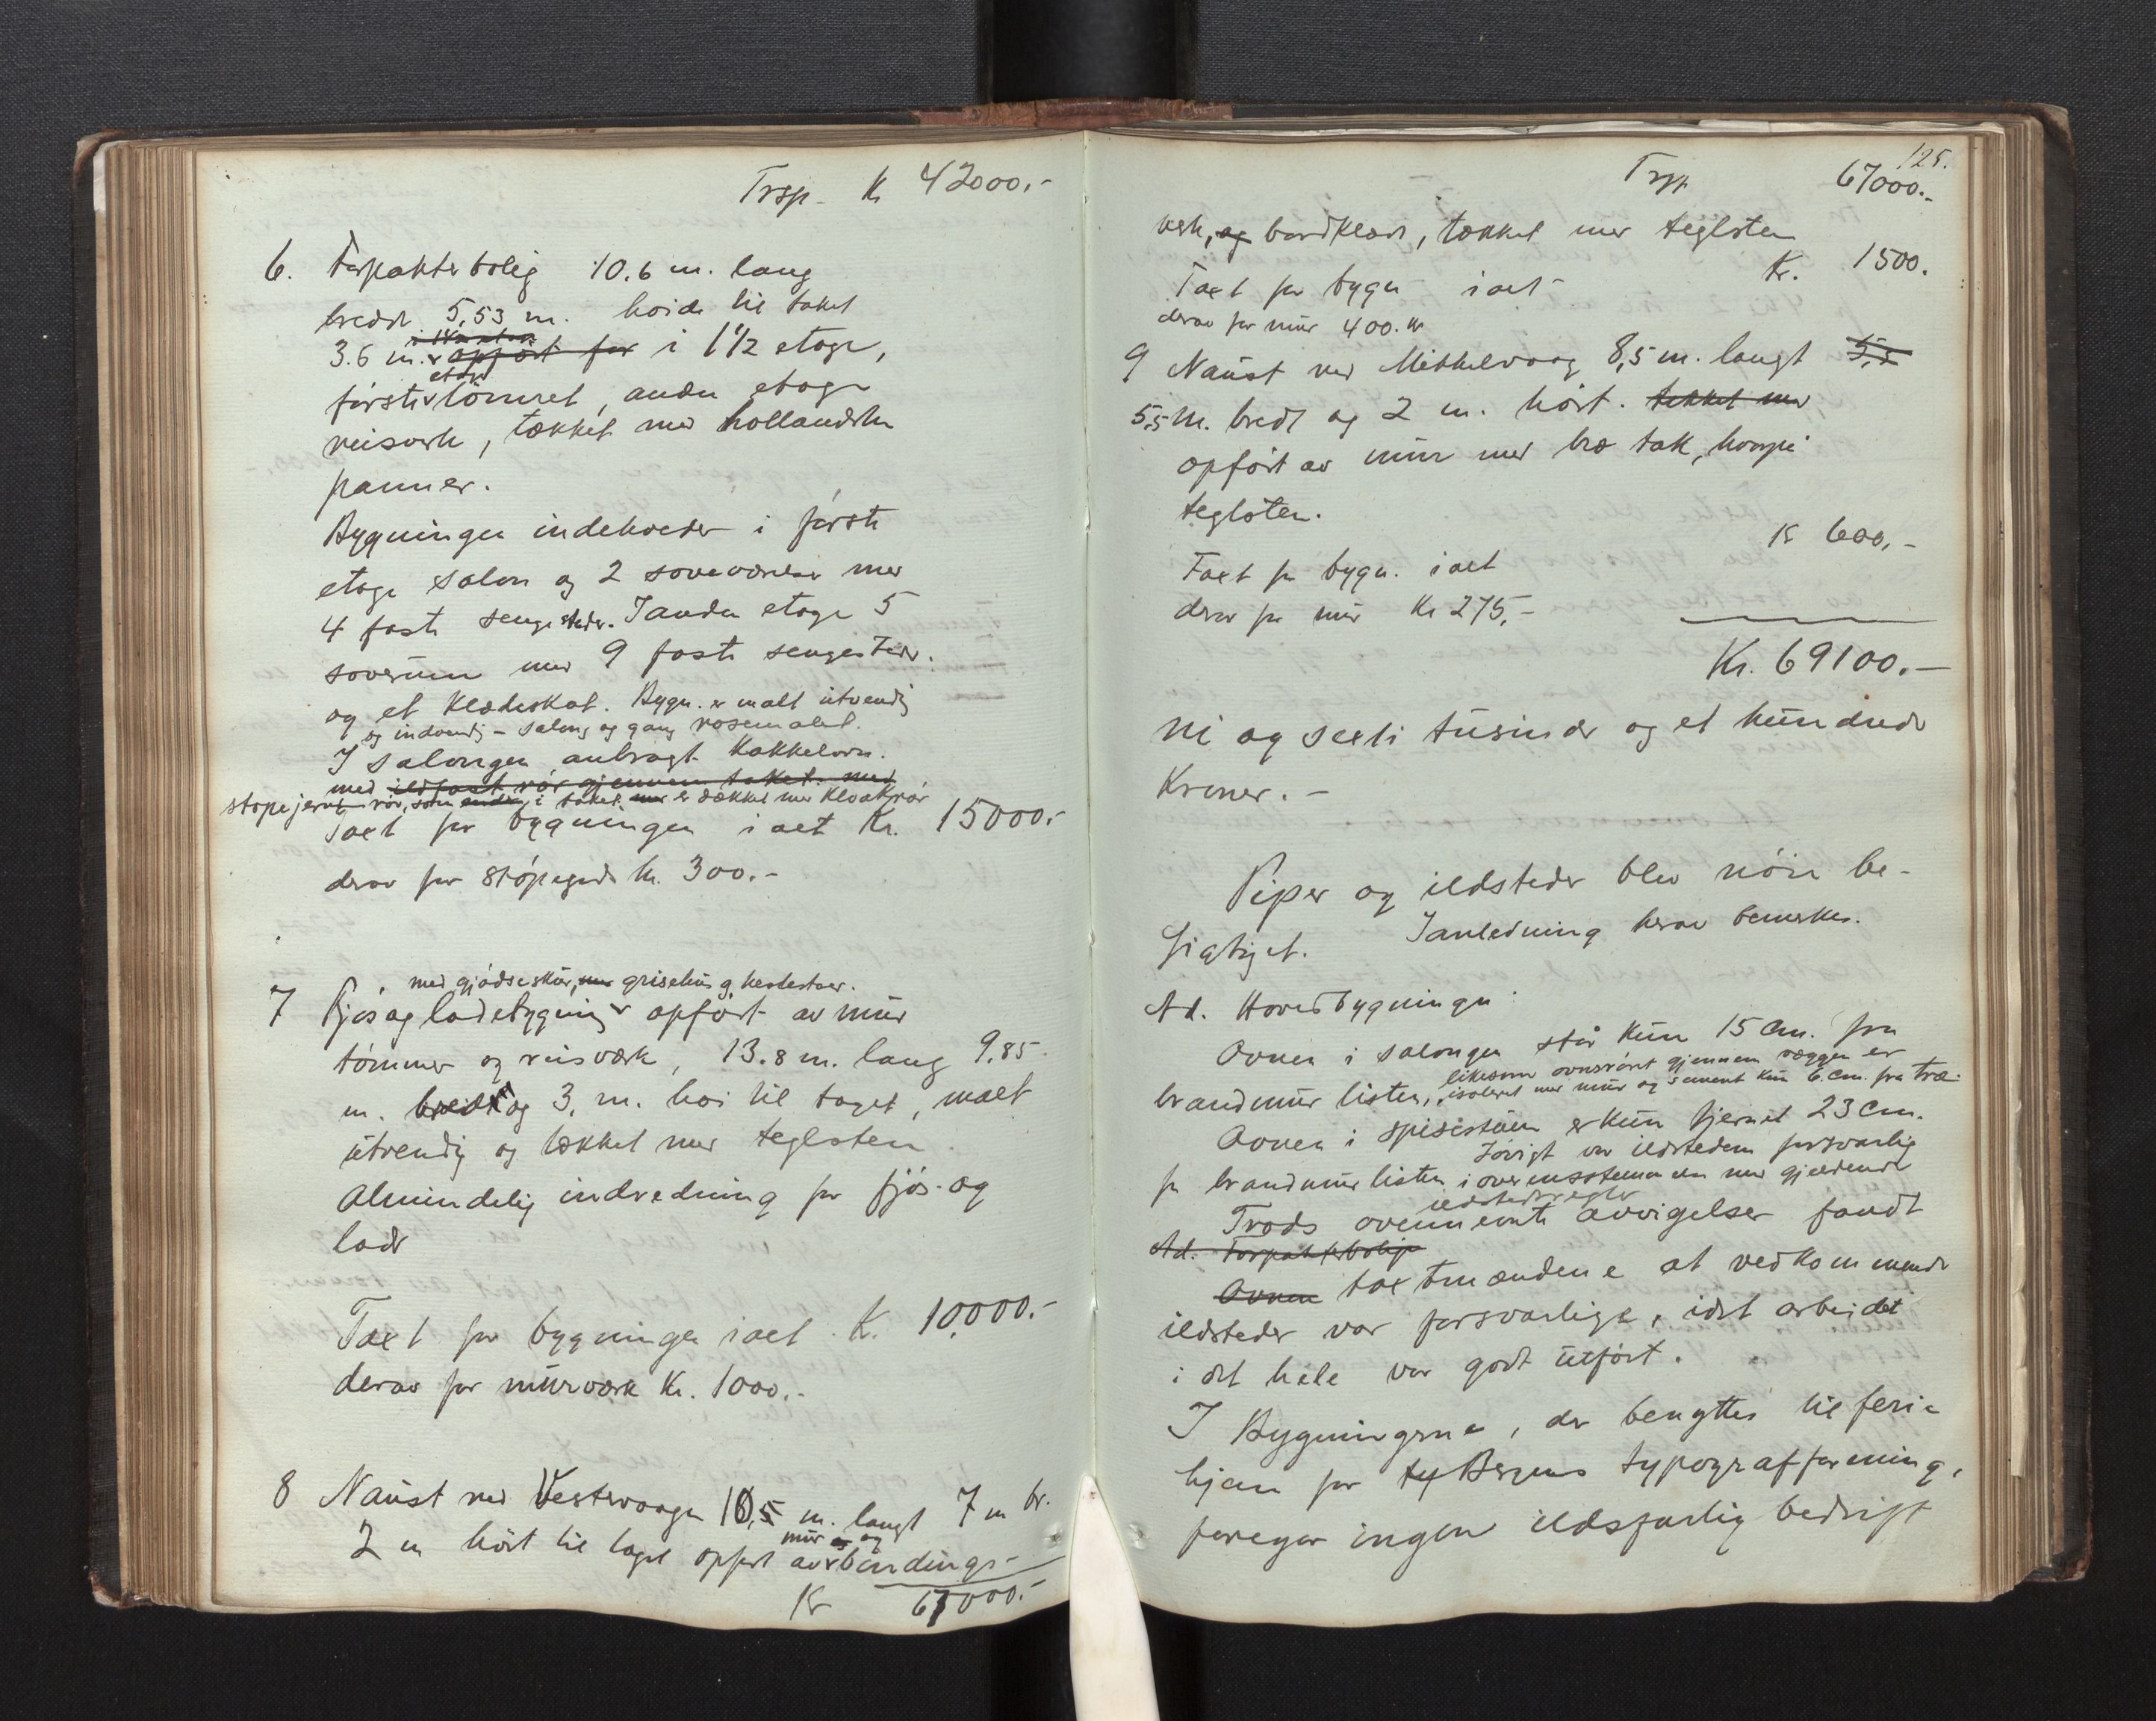 Trsp. Kr 42000.-
6. Forpakterbolig 10.6 m. lang
bredde 5,53 m. høide til taket
3.6 m. opført for i 1 1/2 etage,
første etage tømret, anden etage
reisverk, tækket med hollandske
panner.
Bygningen indeholder i første
etage salon og 2 soveværelser med
4 faste sengesteder. I anden etage 5
soverum med 9 faste sengesteder.
og et klædeskot. Bygn. er malt utvendig
og indvendig - salong og gang rosemalet.
I salongen anbragt kakkelovn.
med ildfast rör gjennem taket. med
støpejerns rör, som ender i taket med er dækket med kloakrör
Taxt for bygningen i alt Kr. 15000.-
derav for støpegods kr. 300.-
med gjødselskur, med grisehus og hestestald.
7 Fjøs og ladebygning opført av mur
tømmer og reisværk, 13.8 m. lang 9.85
m. bred og 3. m. høi til taget, malt
utvendig og tækket med teglsten
Almindelig indredning for fjøs- og
lade
Taxt for bygningen i alt K. 10,000.-
derav for murværk Kr. 1000.-
8 Naust ved Vestervaagen 10,5 m. langt 7 m br.
2 m høit til taget opført av mur og bindings-
Kr 67000.-
125.
Trsp. 67000.-
verk, og bordklædt, tækket med teglsten
Taxt for bygn i alt Kr. 1500.
derav for mur 400. kr
9 Naust ved Mikkelvaag 8,5 m. langt 5,5
5,5 m. bredt og 2 m. høit. tækket med
opført av mur med træ tak, hvorpå
teglsten.
Taxt for bygn. i alt K 600,-
derav for mur Kr 275,-
Kr. 69100.-
ni og seksti tusinde og et hundrede
Kroner. -
Piper og ildsteder blev nöie be-
sigtiget. I anledning herav bemerkes.
Ad. Hovedbygningen:
Ovnen i salongen står kun 15 cm. fra
brandmur listen, likesom ovnsröret gjennem væggen er
isoleret med mur og sement kun 6 cm. fra træ.
Ovnen i spisestuen er kun fjernet 23 cm.
fra brandmurlisten. I övrigt var ildstederne forsvarlig
i overensstemmelse med gjældende
ildstedsregler
Trods ovennevnte avvigelser fandt
Ad. Forpakterbolige
Ovnen taxtmændene at vedkommende
ildsteder var forsvarlige, idet arbeidet
i det hele var godt utført.
I Bygningerne, der benyttes til ferie
hjem for ty Bergens typografforening,
foregår ingen ildsfarlig bedrift